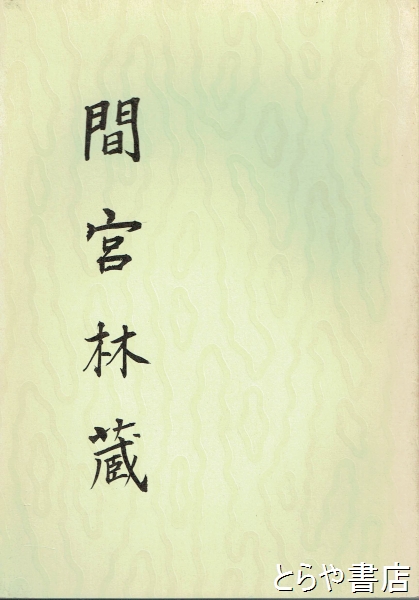 間宮林蔵
とらや書店